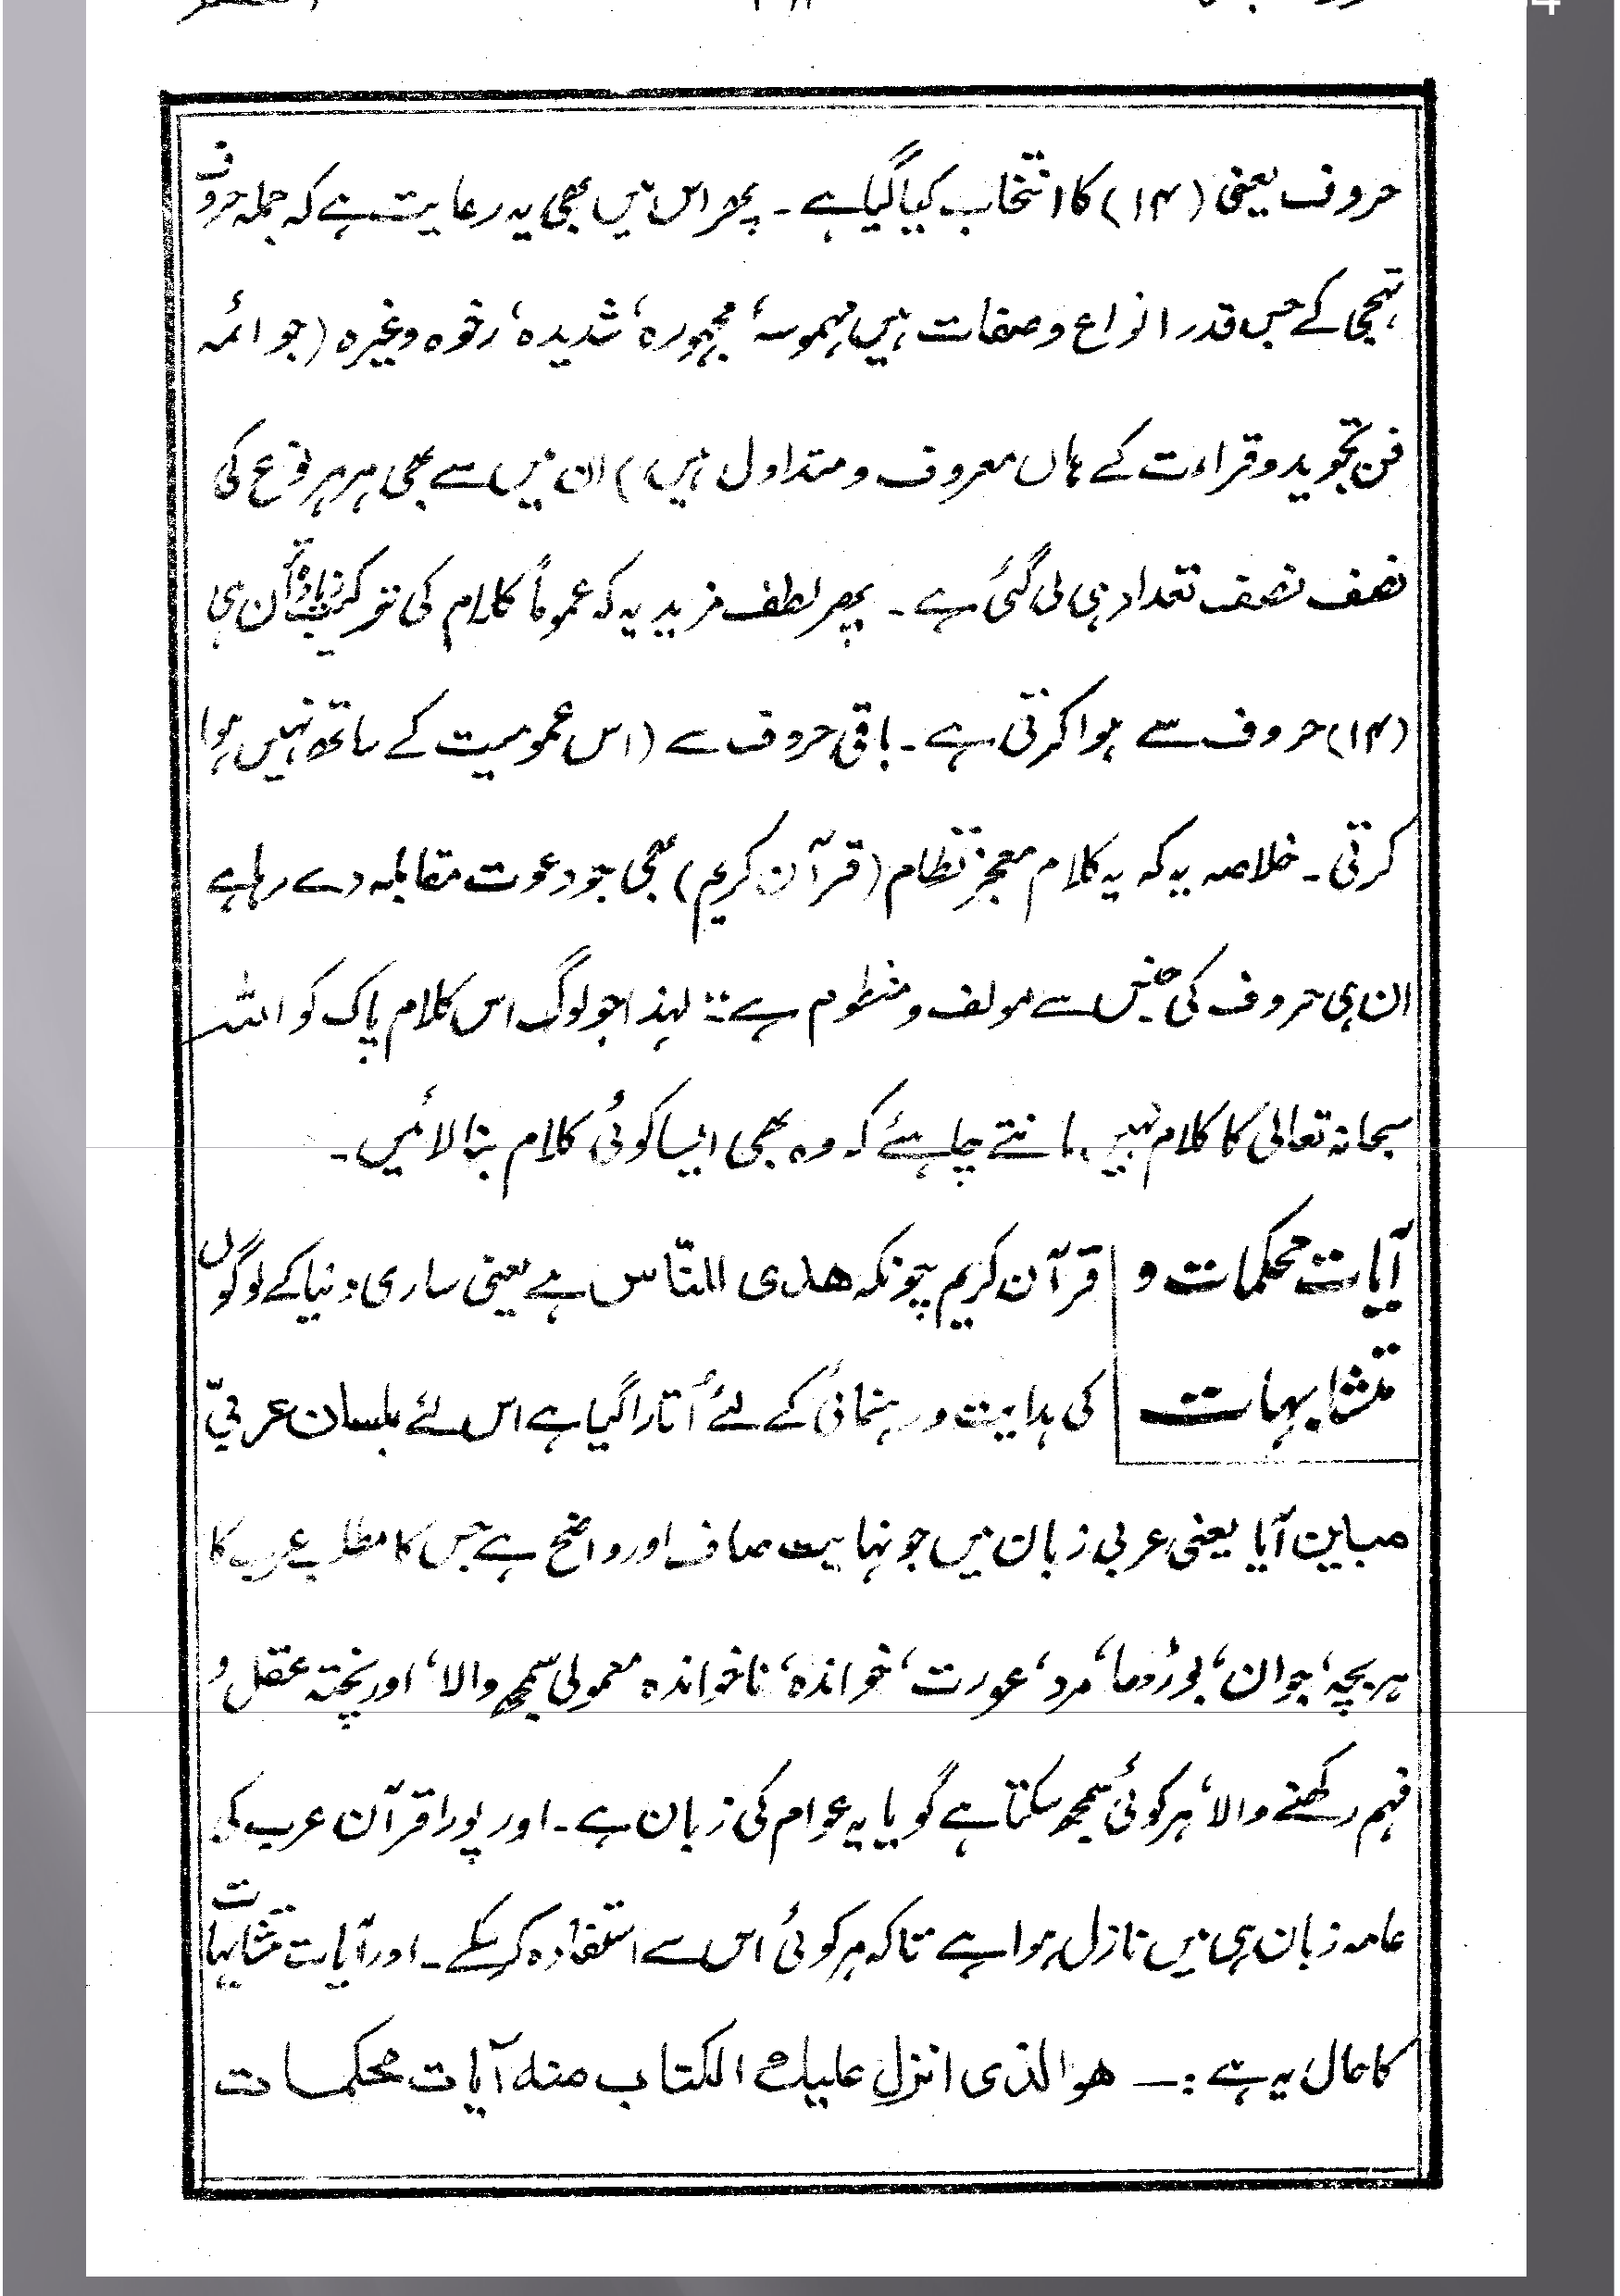 حروف یعنی (۱۴) کا انتخاب کیا گیا ہے ۔ پھر اس میں بھی یہ رعایت ہے کہ جملہ حروف
تہجی کے جس قدر انواع و صفات ہیں مہموسہ، مجہورہ، شدیدہ، رخوہ وغیرہ (جو ائمہ
فن تجوید و قراءت کے ہاں معروف و متداول ہیں) ان میں سے بھی ہر ہر نوع کی
نصف نصف تعداد ہی لی گئی ہے ۔ پھر لطف مزید یہ کہ عموماً کلام کی ترکیب اُن ہی
(۱۴) حروف سے ہوا کرتی ہے ۔ باقی حروف سے (اس عمومیت کے ساتھ نہیں ہوا
کرتی ۔ خلاصہ یہ کہ یہ کلام معجز نظام (قرآن کریم) بھی جو دعوت مقابلہ دے رہا ہے
ان ہی حروف کی جنس سے مولف و منظوم ہے :: لہذا جو لوگ اس کلام پاک کو اللہ
سبحانہ تعالی کا کلام نہیں مانتے چاہئے کہ وہ بھی ایسا کوئی کلام بنا لائیں ۔
آیات محکمات و
متشابہات
قرآن کریم چونکہ ھدی للنّاس ہے یعنی ساری دنیا کے لوگوں
کی ہدایت و رہنمائی کے لئے اُتارا گیا ہے اس لئے بلسان عربیّ
مباین آیا یعنی عربی زبان میں جو نہایت صاف اور واضح ہے جس کا مطلب عرب کا
ہر بچہ، جوان، بوڑھا، مرد، عورت، خواندہ، ناخواندہ معمولی سمجھ والا، اور پختہ عقل و
فہم رکھنے والا، ہر کوئی سمجھ سکتا ہے گویا یہ عوام کی زبان ہے ۔ اور پورا قرآن عرب کی
عامہ زبان ہی میں نازل ہوا ہے تاکہ ہر کوئی اس سے استفادہ کر سکے ۔ اور آیات متشابہات
کا حال یہ ہے :— ھو الذی انزل علیك الکتاب منه آیات محکمات